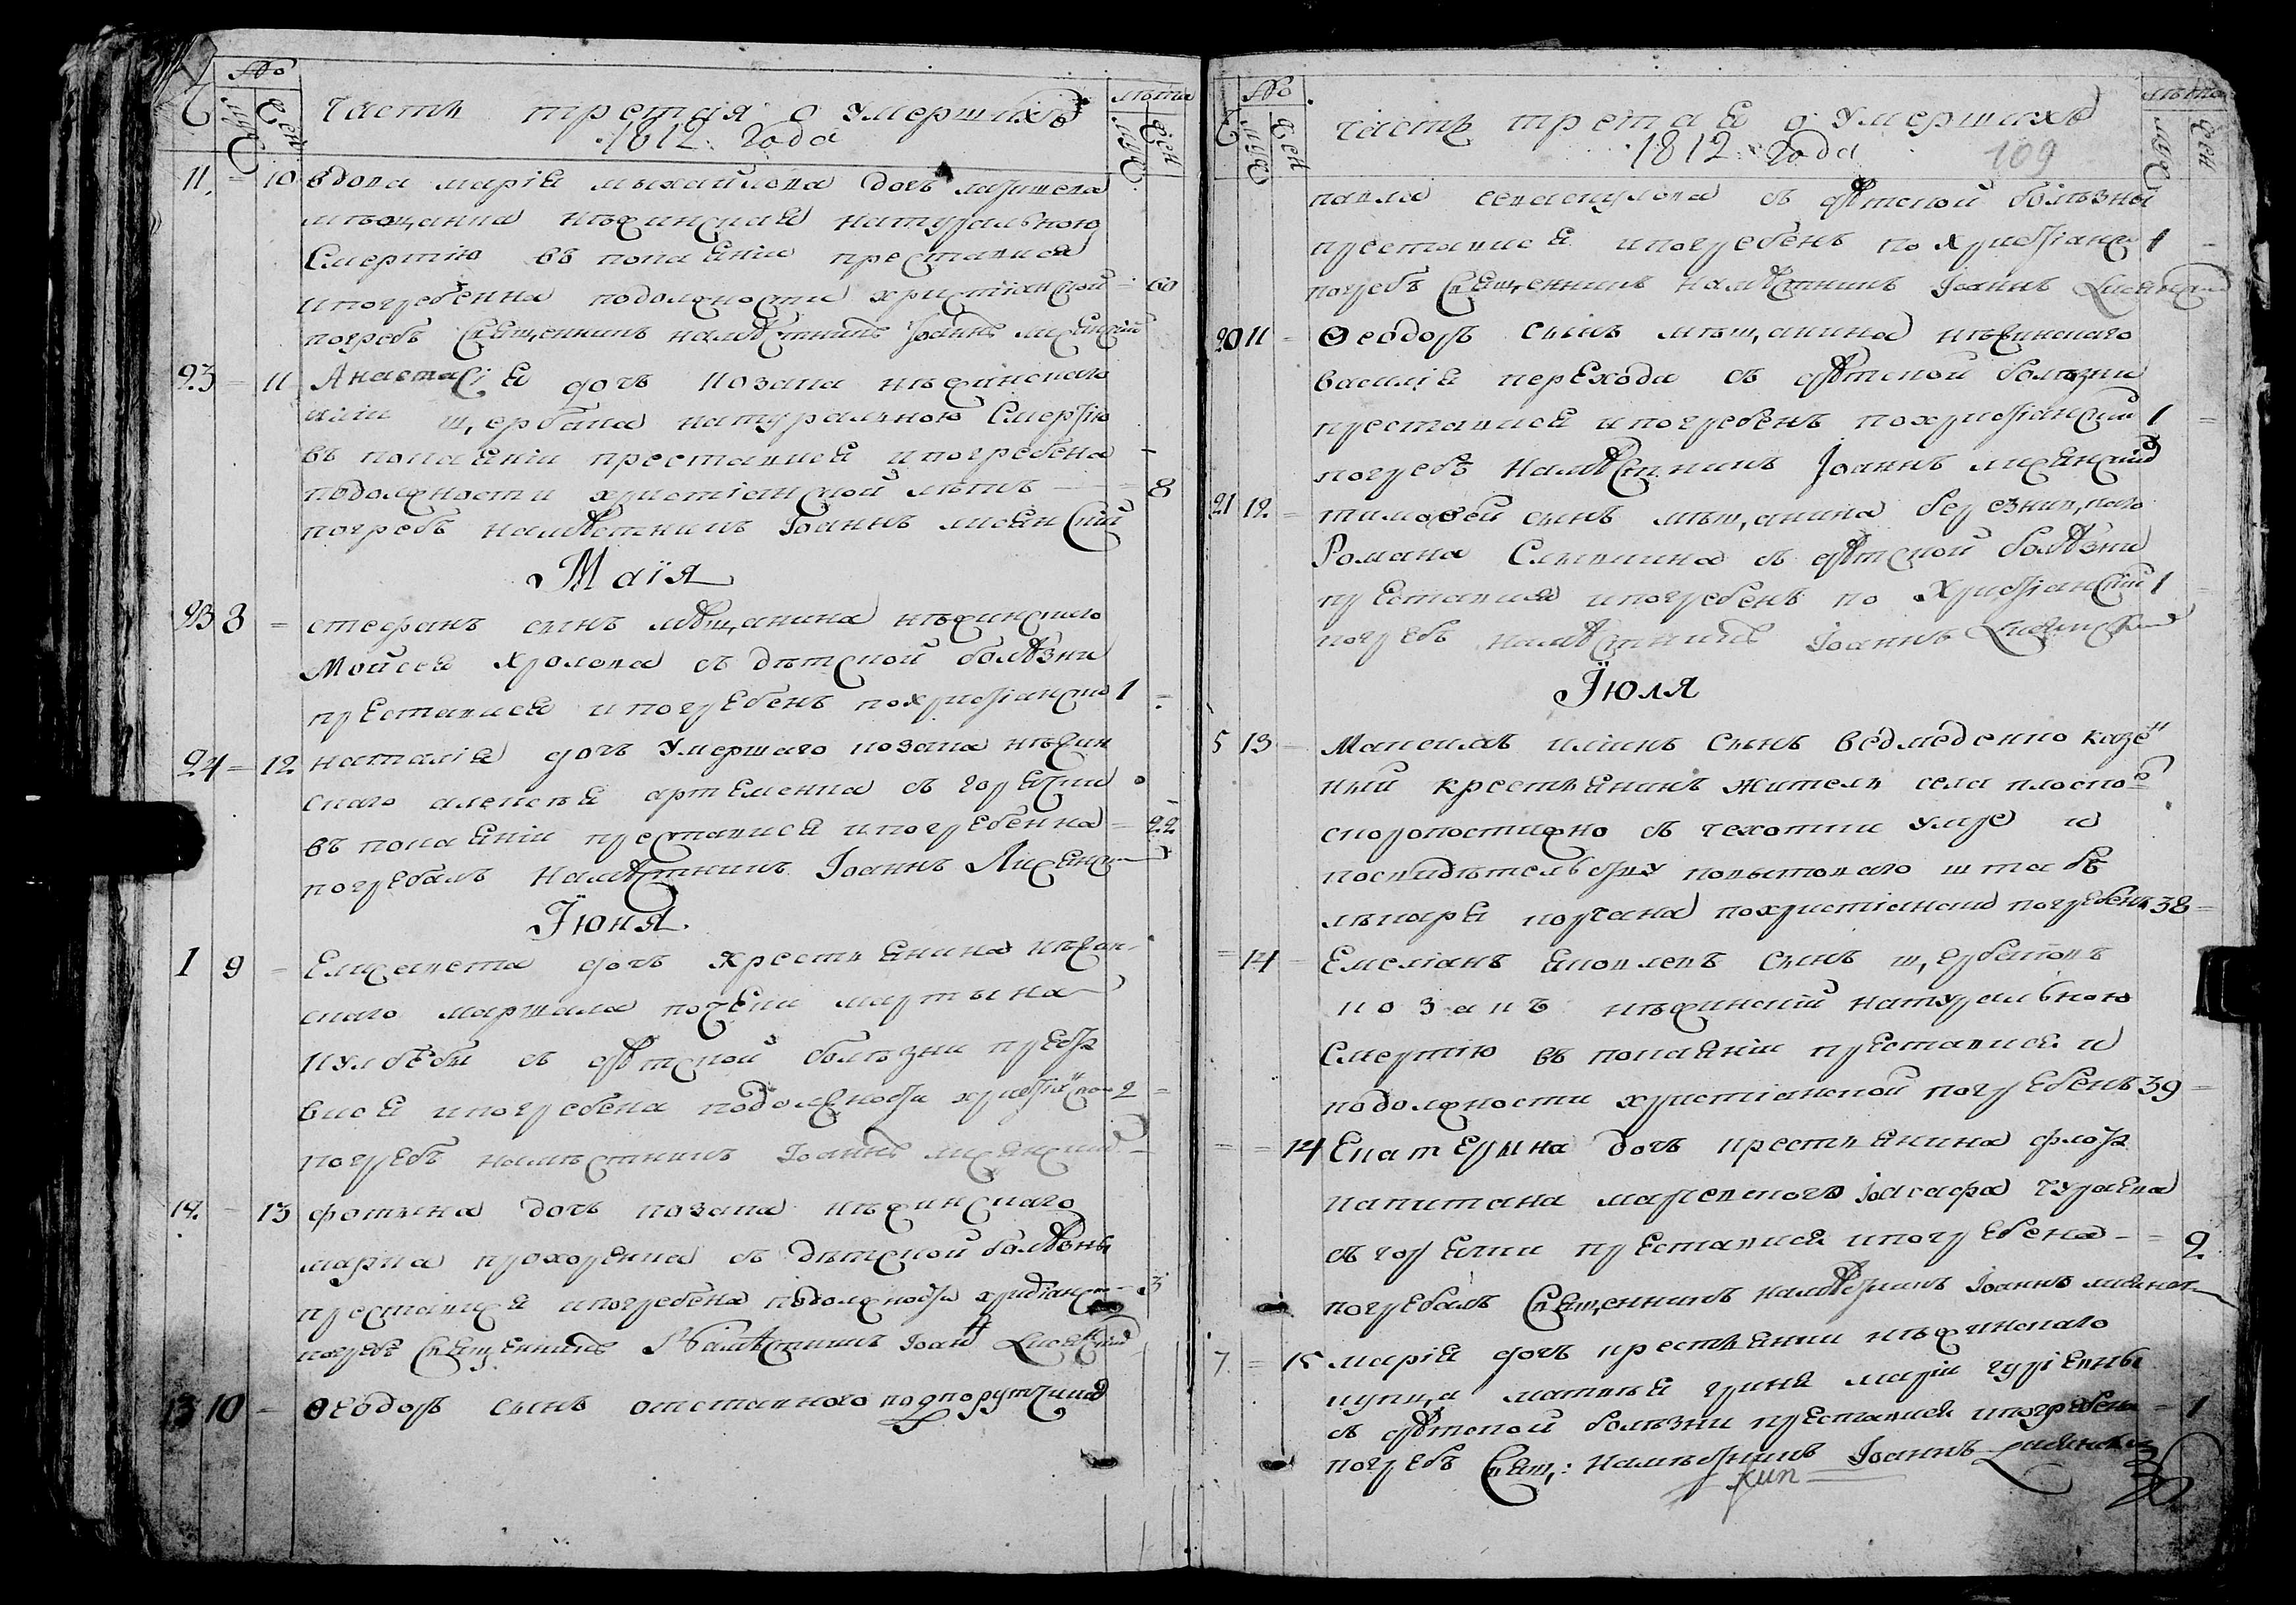 Часть третая о умершихъ
1812 года
11. = 10 вдова маріа михайлова дочь
мѣщанка нѣжинская натуральною
смертію въ покаяніи преставися
и погребенна по должности христіанской = 60
погребъ священникъ намѣстникъ Іоаннъ Лисянскій
23 = 11 Анастасіа дочь козака нѣжинскаго
щербака натуральною смертію
въ покаяніи преставися и погребена
по должности христіанской лѣтъ = 8
погребъ намѣстникъ Іоаннъ лисянскій
Маія
23 8 = стефанъ сынъ мѣщанина нѣжинскаго
Мойсея Хромова съ дѣтской болѣзни
преставися и погребенъ по христіански 1 =
24 = 12 наталіа дочь умершаго козака нѣжин
скаго алексѣя артеменка съ горячки
въ покаяніи преставися и погребенна = 22
погребалъ намѣстникъ Іоаннъ Лисянск
Іюня
1 9 = Елисавета дочь крестьянина нѣжин
скаго мартына
Кулбѣды съ дѣтской болѣзни преста
вися и погребена по должности христіанской 2 =
погребъ намѣстникъ Іоаннъ лисянскій
12. = 13 фотина дочь козака нѣжинскаго
марка прохоренка съ дѣтской болѣзны
преставися и погребена по должности христіанск 3
погребъ священникъ Намѣстникъ Іоаннъ Лисянскій
13 10 = Ѳеодоръ сынъ отставного подпорутчика
Часть третая о умершихъ
1812 года
109
павла севастулова съ дѣтской болѣзны
преставися и погребенъ по христіанск 1 =
погребъ священникъ намѣстникъ Іоаннъ Лисянскій
20 11 = Ѳеодоръ сынъ мѣщанина нѣжинскаго
василіа перехода съ дѣтской болѣзни
преставися и погребенъ по христіански 1 =
погребъ намѣстникъ Іоаннъ лисянскій
21 12. = тимоѳей сынъ мѣщанина
Романа съ дѣтской болѣзни
преставися и погребенъ по христіанскій 1 =
погребъ намѣстникъ Іоаннъ Лисянскій
Іюля
5 13 = Максимъ илiинъ сынъ ведмеденко казен
ный крестьянинъ житель села плоско
скоропостижно съ чехотки умре и
по свидѣтельству повѣтоваго штабъ
лѣкаря по христіански погребенъ 38 =
= 14 = Емеліанъ яковлевъ сынъ щербаковъ
козакъ нѣжинскій натуральною
смертію въ покаяніи преставися и
по должности христіанской погребенъ 39 =
= = 14 Екатерина дочь крестьянина флота
капитана Іоасафа чураева
съ горячки преставися и погребена = 2.
погребалъ священникъ намѣстникъ Іоаннъ лисянск
7. = 15 маріа дочь крестьянки нѣжинскаго
купца матвѣя маріи
съ дѣтской болѣзни преставися и погребена = 1
погребъ свящ: намѣстникъ Іоаннъ Лисянскій